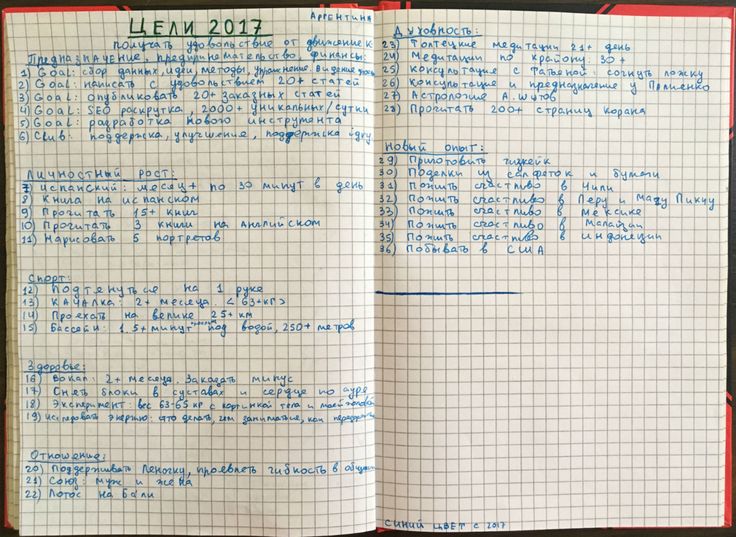 ЦЕЛИ 2017
АРГЕНТИНА
получать удовольствие от движения к
Предназначение, предпринемательство финансы:
1) Goal: сбор данных, идеи, методы, упражнение. Видение
2) Goal: написать с удовольствием 20+ статей
3) Goal: опубликовать 20+ заказных статей
4) Goal: SEO раскрутка, 2000+ уникальных/сутки
5) Goal: разработка нового инструмента
6) Club: поддержка, улучшение, поддержка
Личностный рост:
7) испанский: месяц+ по 30 минут в день
8) Книга на испанском
9) Прочитать 15+ книг
10) Прочитать 3 книги на Английском
11) Нарисовать 5 портретов
Спорт:
12) Подтянуться на 1 руке
13) КАЧАЛКА: 2+ месяца. <63+кг>
14) Проехать на велике 25+ км
15) Бассейн: 1.5+минут под водой, 250+ метров
Здоровье:
16) Вокал: 2+ месяца. Заказать минус
17) Снять блоки в суставах и сердце по ауре
18) Эксперимент: вес 63-65 кг с картинкой тела и
19) Исследовать энергию: что делать, чем заниматься, как
Отношение:
20) Поддерживать Леночку, проявлять гибкость в
21) Союз: муж и жена
22) Лотос на Бали
Духовность:
23) Толтецкие медитации 21+ день
24) Медитации по крайону: 30+
25) Консультация с Татьяной: согнуть ложку
26) Консультация и предназначение у
27) Астрология А. Шутов
28) Прочитать 200+ страниц корана
Новый опыт:
29) Приготовить чизкейк
30) Поделки из салфеток и бумаги
31) Пожить счастливо в Чили
32) Пожить счастливо в Перу и Мачу Пикчу
33) Пожить счастливо в Мексике
34) Пожить счастливо в Малайзии
35) Пожить счастливо в Индонезии
36) Побывать в США
СИНИЙ ЦВЕТ С 2017